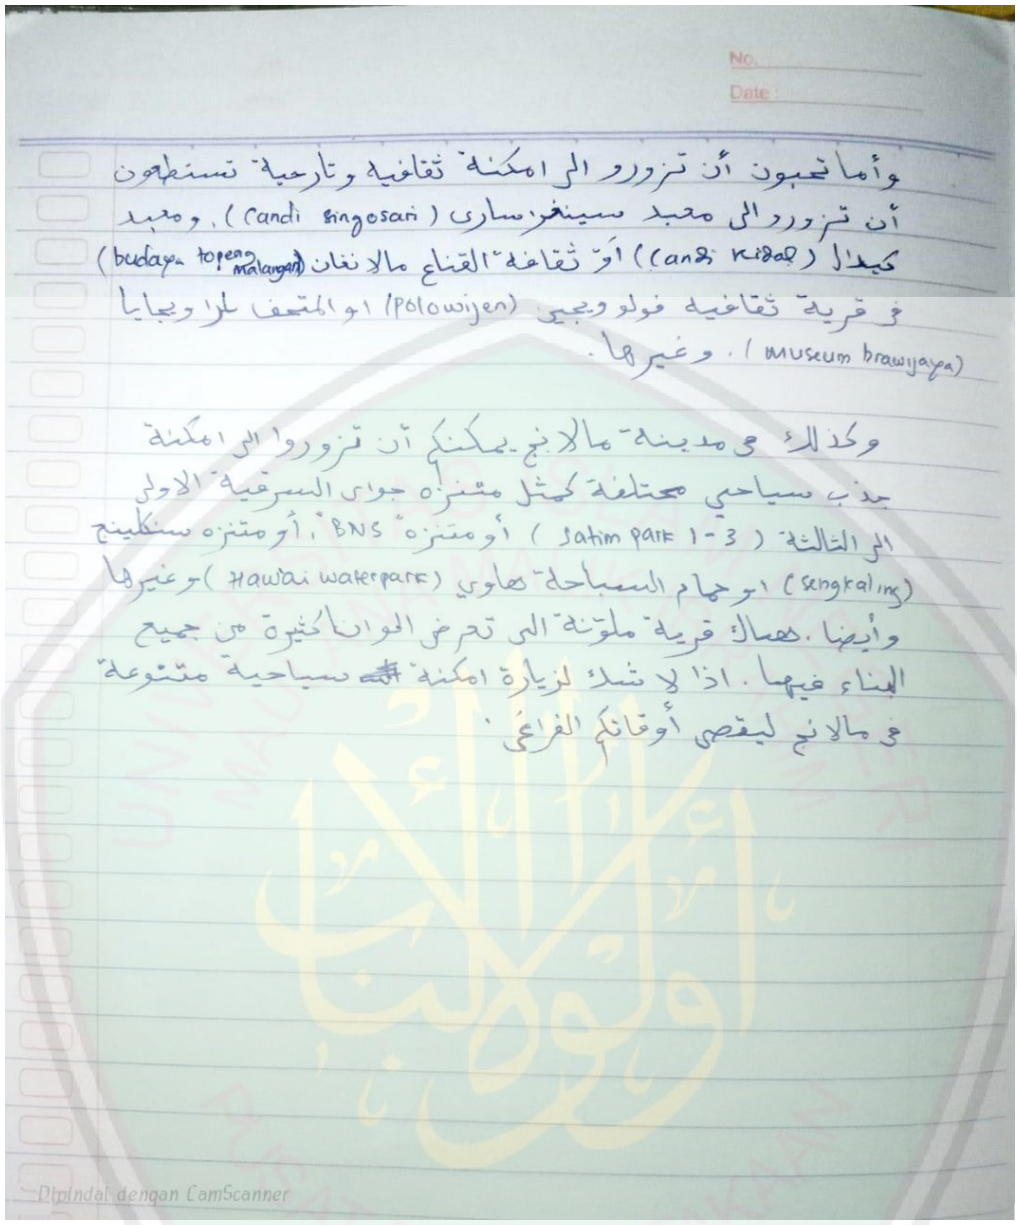 No.
Date :
وأما تحبون أن تزورو الى امكنة ثقافيه وتارحية تستطعون
أن تزورو الى معبد سينغوساري (Candi singosari). ومعبد
كيدال (Candi Kidal) أو ثقافة القناع مالانغان (budaya topeng malangan)
في قرية ثقافيه فولوويجين (Polowijen) او المتحف براويجايا
(Museum brawijaya). وغيرها.
وكذلك في مدينة مالانج يمكنكم أن تزوروا الى امكنة
جذب سياحي مختلفة كمثل متنزه جوى السرقية الاولى
الى الثالثة (Jatim park 1-3) أو متنزه "BNS". أو متنزه سنكلينج
(Sengkaling) او حمام السباحة هاوي (Hawai waterpark) وغيرها
وأيضا. هناك قرية ملونة التى تعرض الوانا كثيرة من جميع
البناء فيها. اذا لا شك لزيارة امكنة سياحية متنوعة
في مالانج ليقصى أوقاتكم الفراغي.
UNIVERSITAS ISLAM NEGERI
MAULANA MALIK IBRAHIM
أولو الألباب
PUSAT PERPUSTAKAAN
Dipindai dengan CamScanner